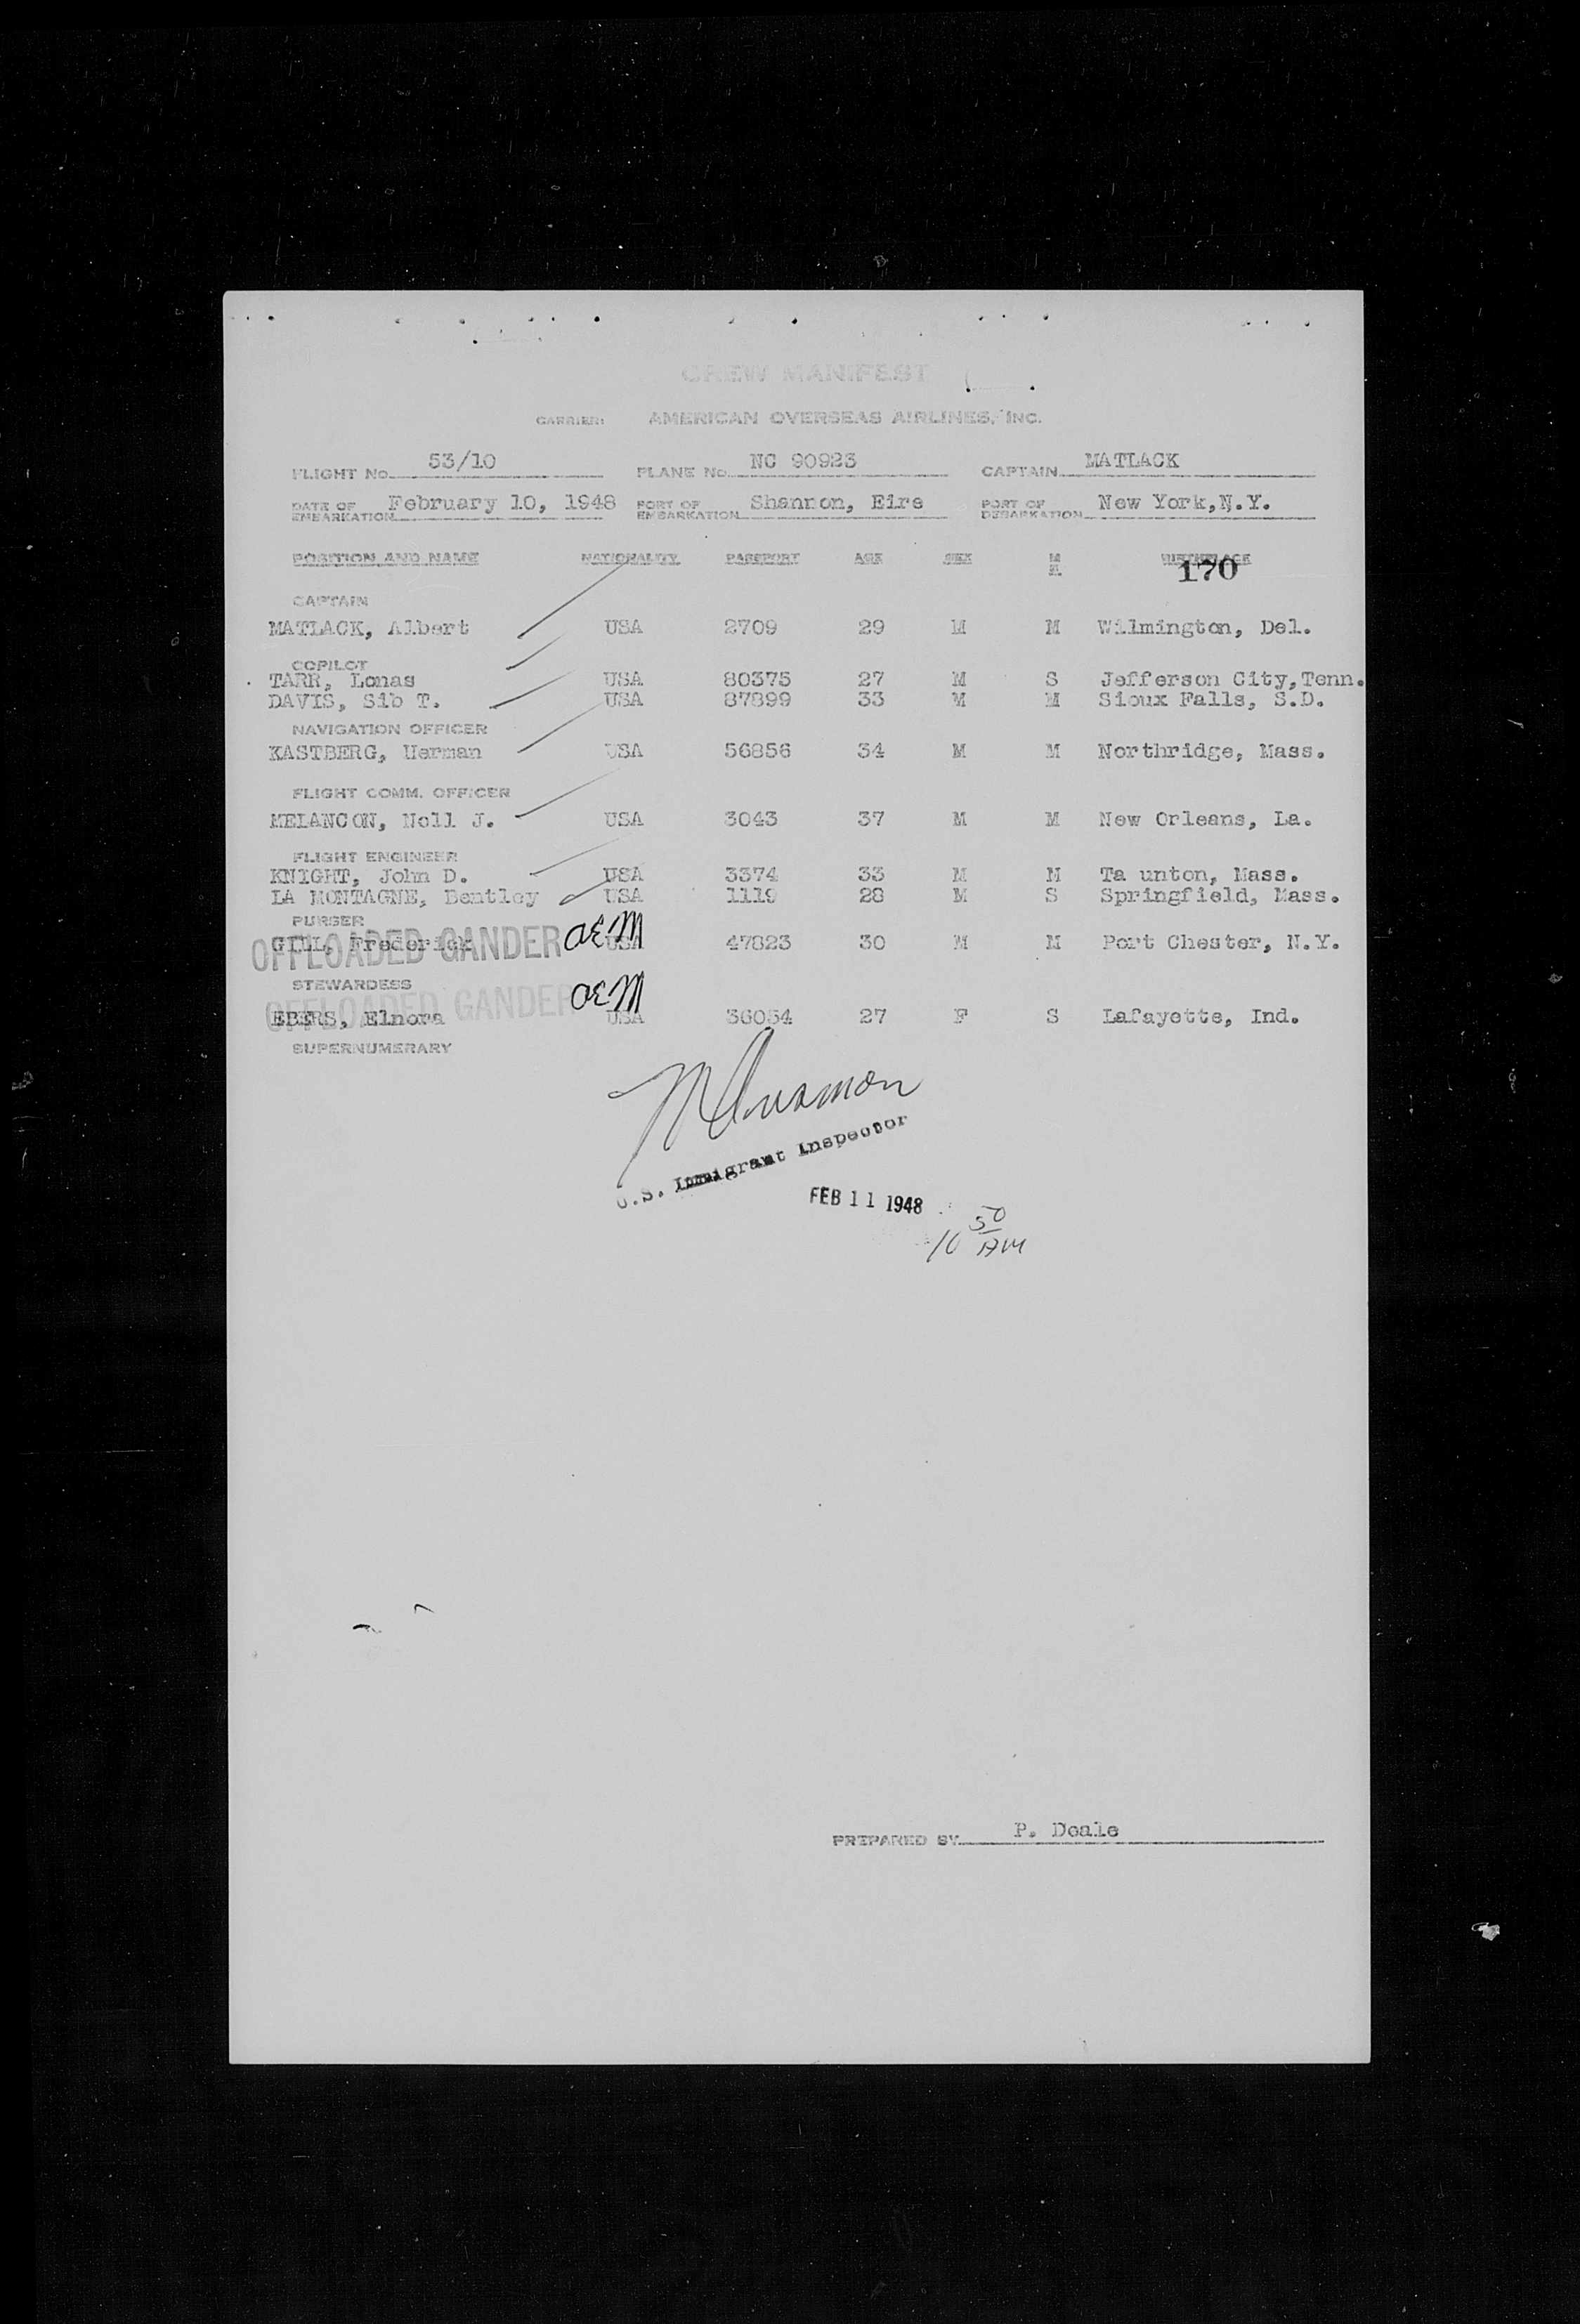 CREW MANIFEST
CARRIER: AMERICAN OVERSEAS AIRLINES, INC.
FLIGHT No. 53/10 PLANE No. NC 90923 CAPTAIN MATLACK
DATE OF EMBARKATION February 10, 1948 PORT OF EMBARKATION Shannon, Eire PORT OF DEBARKATION New York,N.Y.
POSITION AND NAME NATIONALITY PASSPORT AGE SEX M S BIRTHPLACE
170
CAPTAIN
MATLACK, Albert USA 2709 29 M M Wilmington, Del.
COPILOT
TARR, Lonas USA 80375 27 M S Jefferson City,Tenn.
DAVIS, Sib T. USA 87899 33 M M Sioux Falls, S.D.
NAVIGATION OFFICER
KASTBERG, Herman USA 56856 34 M M Northridge, Mass.
FLIGHT COMM. OFFICER
MELANCON, Noll J. USA 3043 37 M M New Orleans, La.
FLIGHT ENGINEER
KNIGHT, John D. USA 3374 33 M M Ta unton, Mass.
LA MONTAGNE, Bentley USA 1119 28 M S Springfield, Mass.
PURSER
GILL, Frederick USA 47823 30 M M Port Chester, N.Y.
OFFLOADED GANDER
STEWARDESS
OFFLOADED GANDER
EBERS, Elnora USA 36054 27 F S Lafayette, Ind.
SUPERNUMERARY
U.S. Immigrant Inspector
FEB 11 1948
10 50 AM
PREPARED BY P. Doale